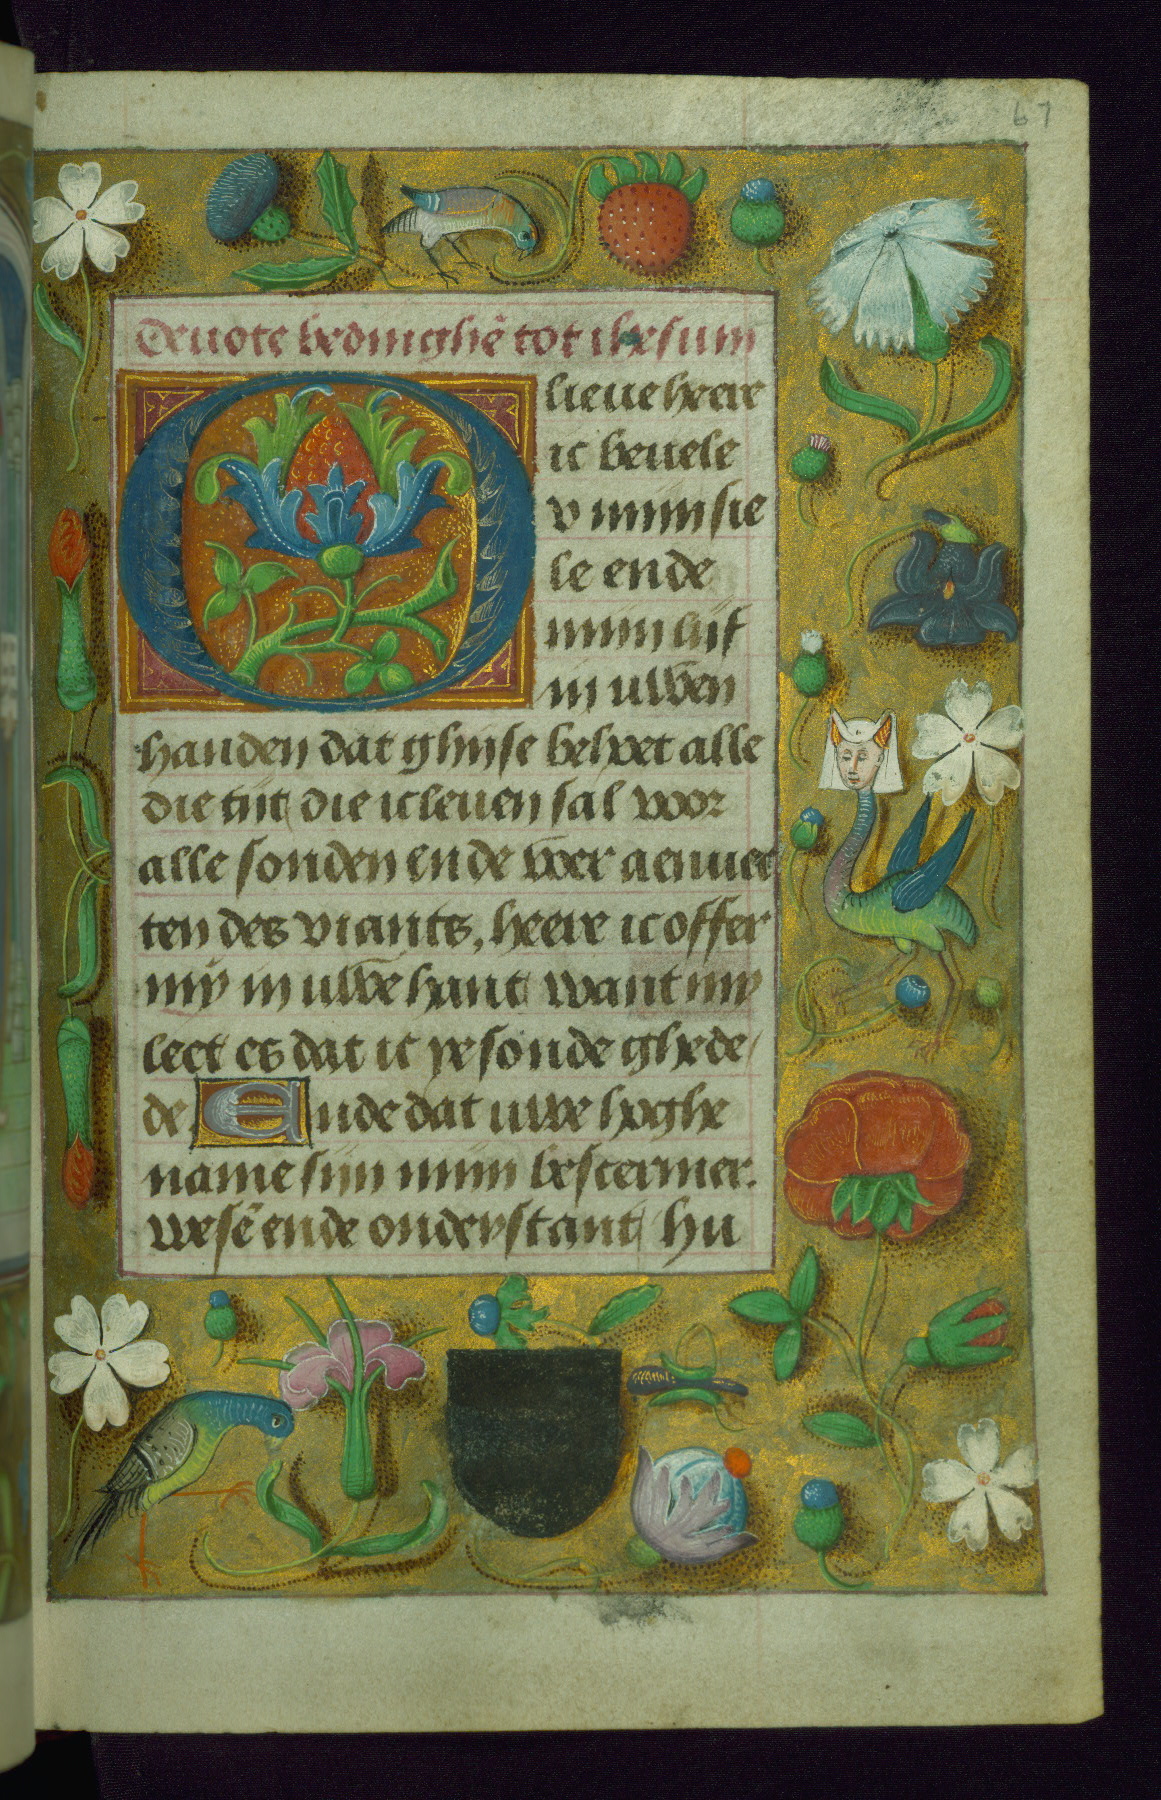 67
Deuote bedinghē tot ihesum
O lieue heere
ic beuele
v mijn sie
le ende
mijn lijf
in uwen
handen dat ghijse behoet alle
die tijt die ic leuen sal voor
alle sonden ende voer aenuech
ten des viants, heere ic offer
my in uwe hant want my
leet es dat ic ye sonde ghede
de. Ende dat uwe hoghe
name sijn mijn bescermer.
wesē ende onderstant hu